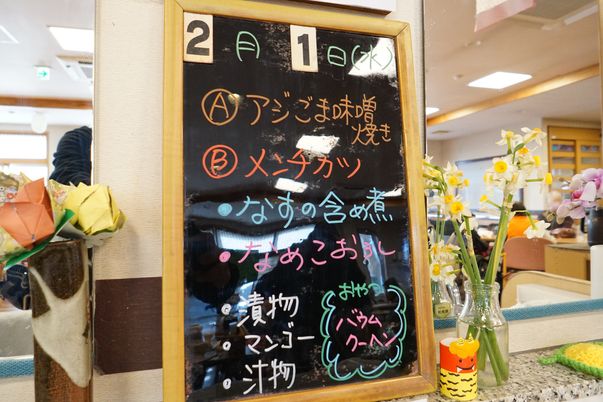 2月1日(水)
Ⓐアジごま味噌
焼き
Ⓑメンチカツ
・なすの含め煮
・なめこおろし
・漬物
・マンゴー
・汁物
おやつ
バウム
クーヘン